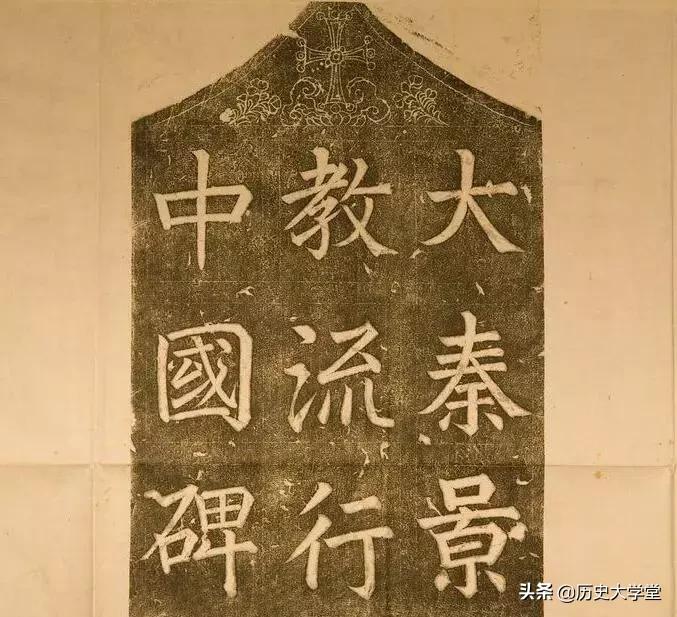 大秦景
教流行
中國碑
头条 @历史大学堂